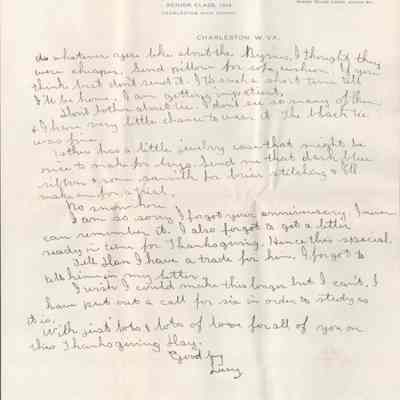 SENIOR CLASS, 1914
CHARLESTON HIGH SCHOOL
CHARLESTON W. VA.
do whatever you like about the I thought they
were cheaper. Send pillow for sofa cushion. If you
think best don't send it. It is such a short time till
I'll be home. I am getting impatient.
Don't bother about tie. I don't see so many of them
& I have very little chance to wear it. The black tie
was fine.
Esther has a little jewelry case that might be
nice to make for boys. Send me that dark blue
ribbon & some for brier stitching & I'll
make one for a girl.
No snow here.
I am so sorry I forgot your anniversary. I never
can remember it. I also forgot to get a letter
ready in time for Thanksgiving. Hence this special.
Tell I have a trade for him. I forgot to
tell him in my letter.
I wish I could make this longer but I can't. I
have put out a call for six in order to study as
it is.
With just lots & lots of love for all of you on
this Thanksgiving Day.
Good by